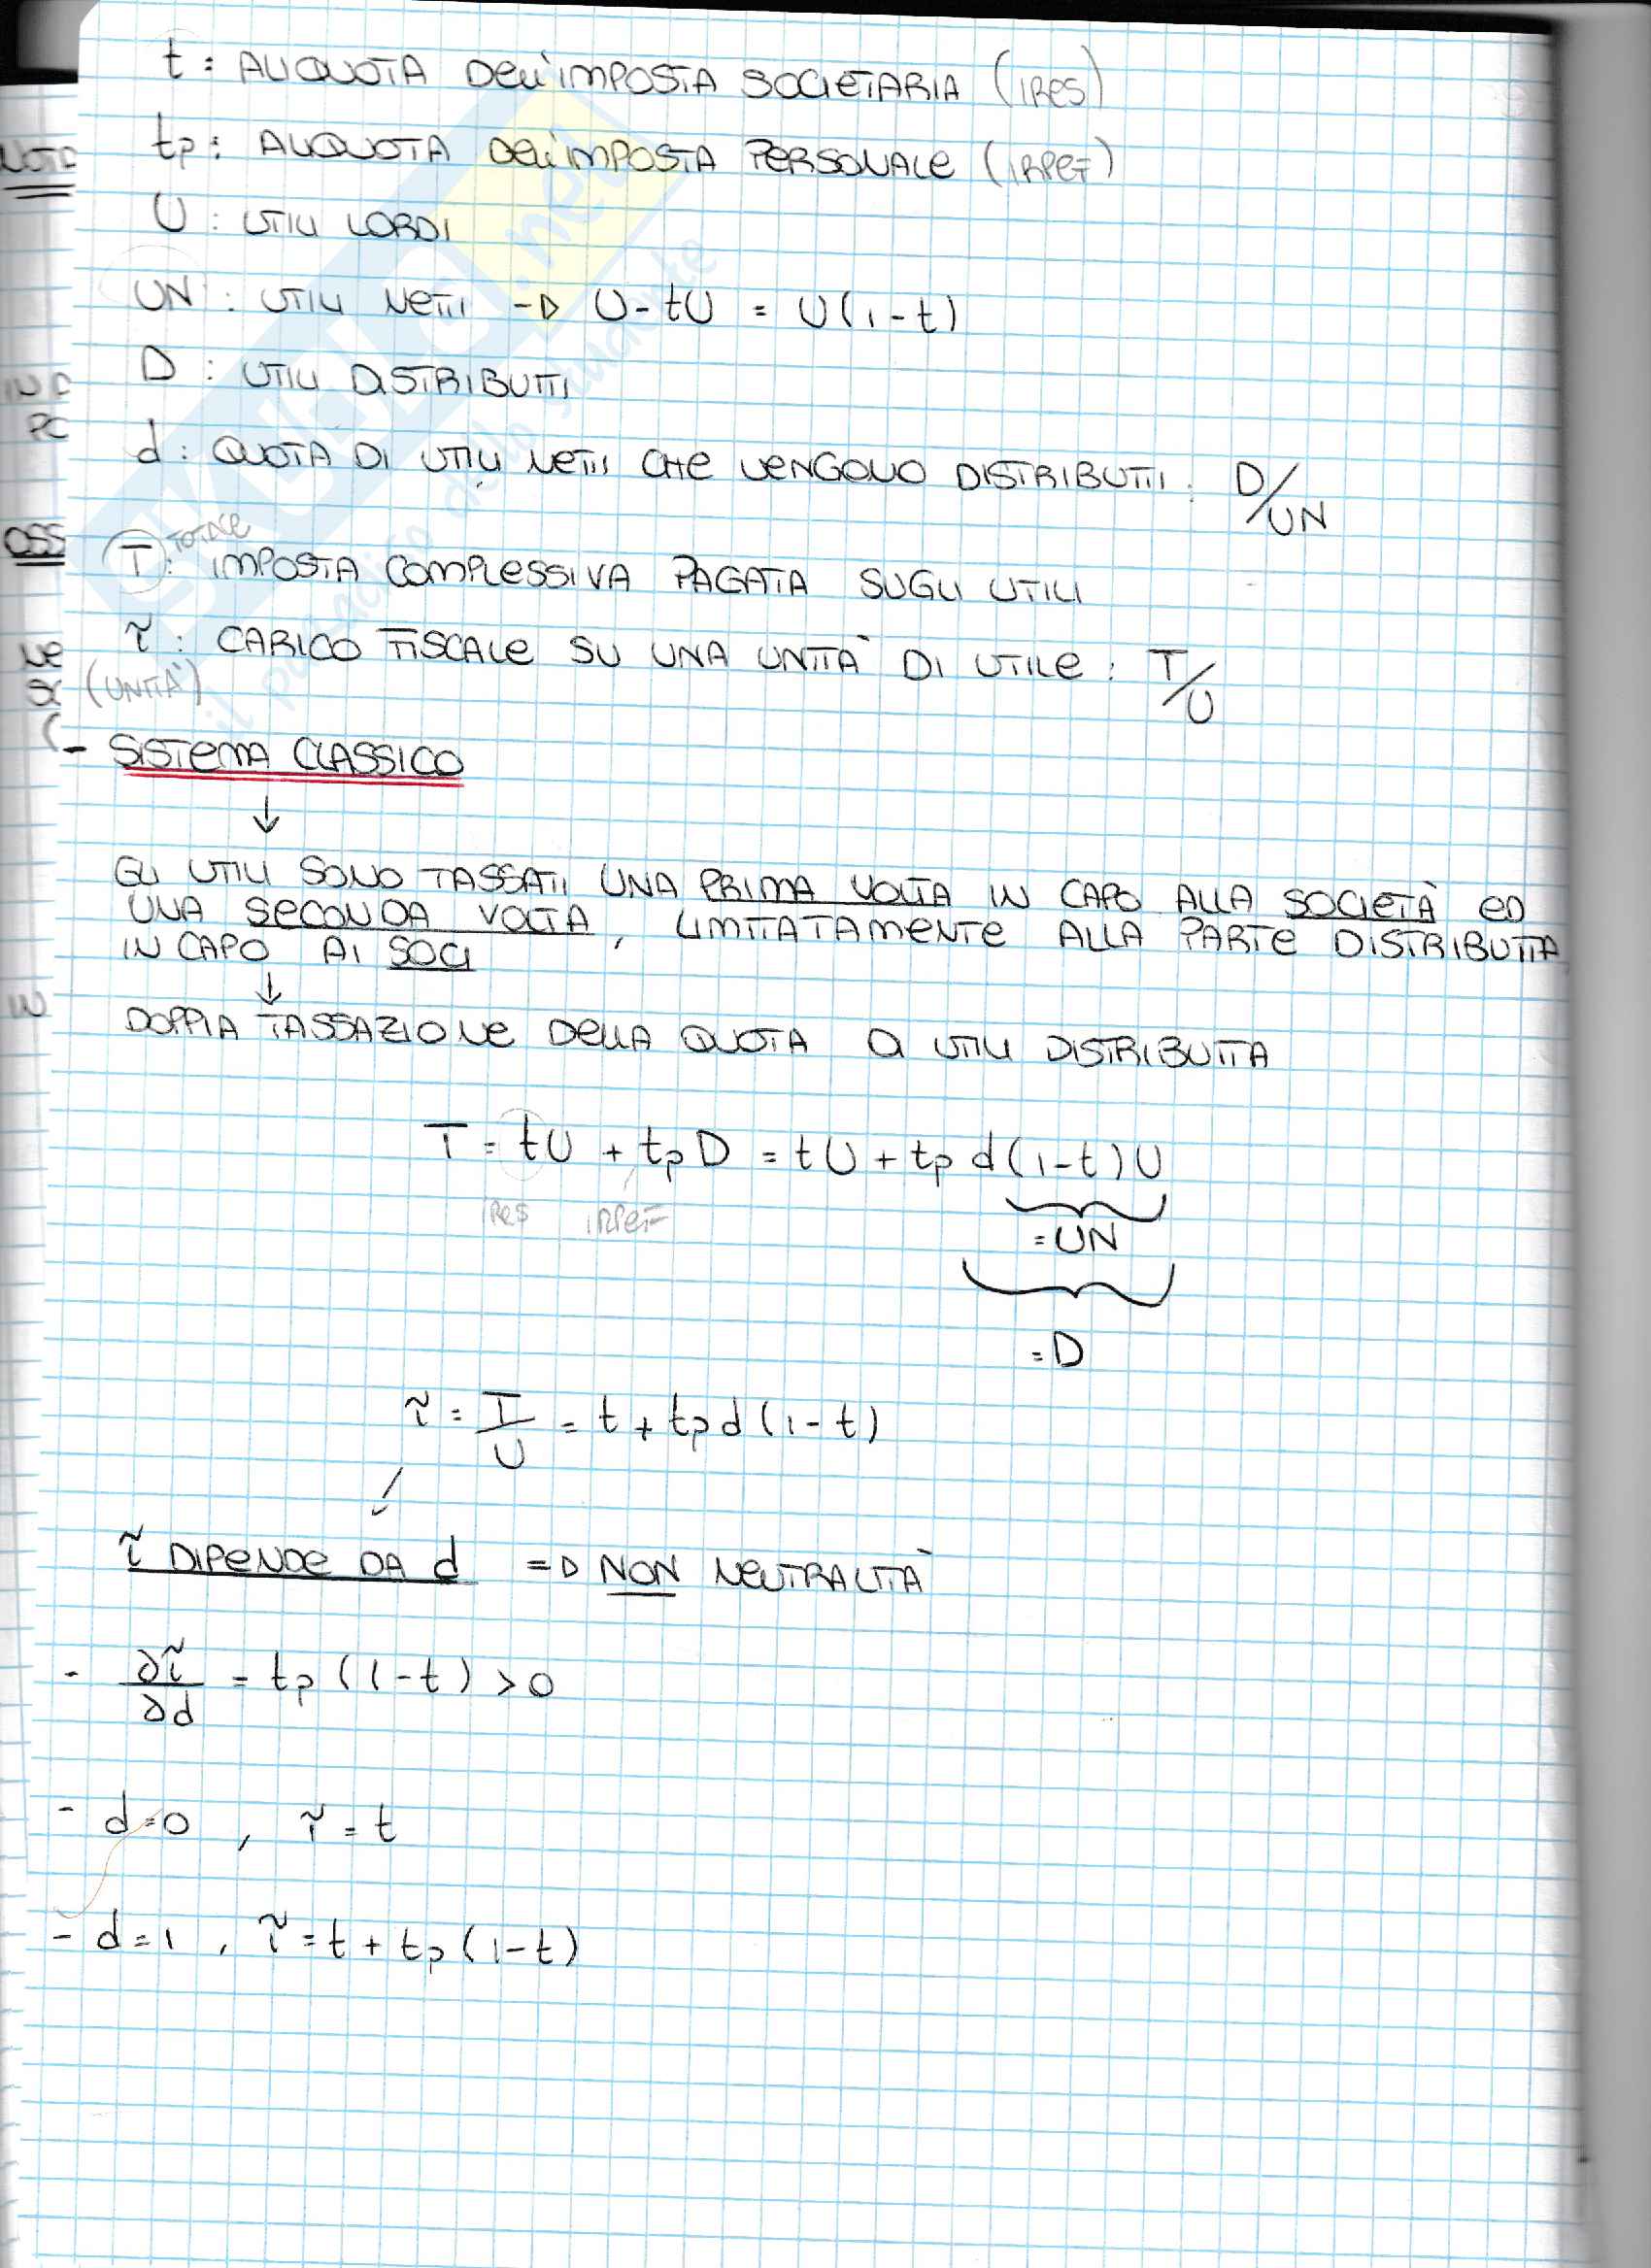 t : ALIQUOTA DELL'IMPOSTA SOCIETARIA (IRES)
tp : ALIQUOTA DELL'IMPOSTA PERSONALE (IRPEF)
NOTA
U : UTILI LORDI
UN : UTILI NETTI -D U - tU = U(1-t)
D : UTILI DISTRIBUITI
d : QUOTA DI UTILI NETTI CHE VENGONO DISTRIBUITI : D/UN
OSS
T : TOTALE IMPOSTA COMPLESSIVA PAGATA SUGLI UTILI
τ̃ : CARICO FISCALE SU UNA UNITÀ DI UTILE : T/U
(UNITÀ)
- SISTEMA CLASSICO
↓
GLI UTILI SONO TASSATI UNA PRIMA VOLTA IN CAPO ALLA SOCIETÀ ED
UNA SECONDA VOLTA, LIMITATAMENTE ALLA PARTE DISTRIBUITA
IN CAPO AI SOCI
↓
DOPPIA TASSAZIONE DELLA QUOTA DI UTILI DISTRIBUITA
T = tU + tpD = tU + tp d(1-t)U
IRES IRPEF
= UN
= D
τ̃ = T/U = t + tp d(1-t)
τ̃ DIPENDE DA d =D NON NEUTRALITÀ
- ∂τ̃/∂d = tp (1-t) > 0
- d=0 , τ̃ = t
- d=1 , τ̃ = t + tp (1-t)
SKUOLA.net